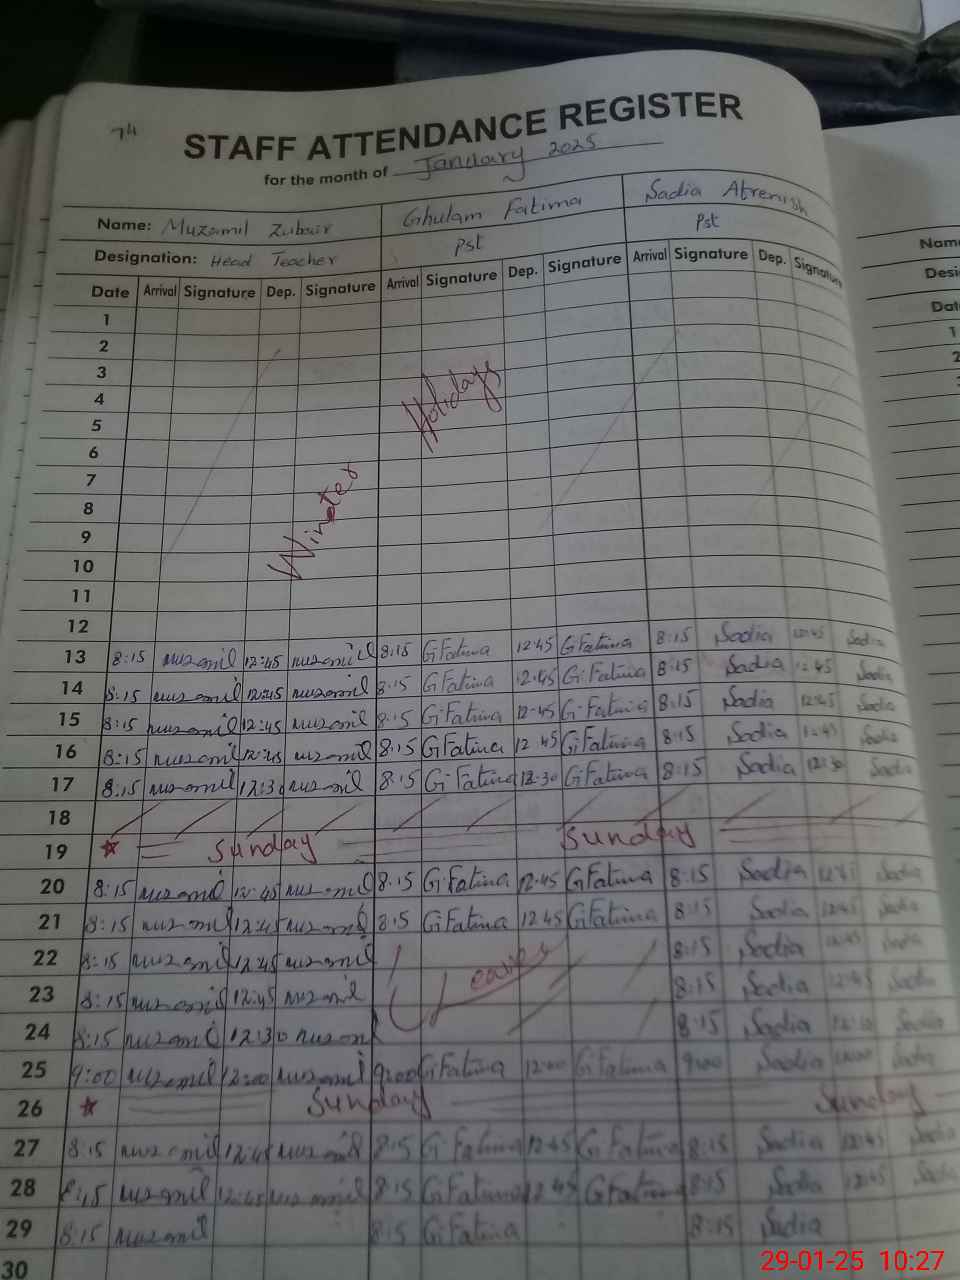 74
STAFF ATTENDANCE REGISTER
for the month of January 2025
Name: Muzamil Zubair Ghulam Fatima Sadia Afrenish
Designation: Head Teacher Pst Pst
Date Arrival Signature Dep. Signature Arrival Signature Dep. Signature Arrival Signature Dep. Signature
1
2
3
4
5
6
7
8
9
10
11
12
Winter Holidays
13 8:15 muzamil 12:45 muzamil 8:15 G Fatima 12:45 G Fatima 8:15 Sadia 12:45 Sadia
14 8:15 muzamil 12:45 muzamil 8:15 G Fatima 12:45 G Fatima 8:15 Sadia 12:45 Sadia
15 8:15 muzamil 12:45 muzamil 8:15 G Fatima 12:45 G Fatima 8:15 Sadia 12:45 Sadia
16 8:15 muzamil 12:45 muzamil 8:15 G Fatima 12:45 G Fatima 8:15 Sadia 12:45 Sadia
17 8:15 muzamil 12:30 muzamil 8:15 G Fatima 12:30 G Fatima 8:15 Sadia 12:30 Sadia
18
19 Sunday Sunday
20 8:15 muzamil 12:45 muzamil 8:15 G Fatima 12:45 G Fatima 8:15 Sadia 12:45 Sadia
21 8:15 muzamil 12:45 muzamil 8:15 G Fatima 12:45 G Fatima 8:15 Sadia 12:45 Sadia
22 8:15 muzamil 12:45 muzamil Leaves 8:15 Sadia 12:45 Sadia
23 8:15 muzamil 12:45 muzamil 8:15 Sadia 12:45 Sadia
24 8:15 muzamil 12:30 muzamil 8:15 Sadia 12:30 Sadia
25 9:00 muzamil 12:00 muzamil 9:00 G Fatima 12:00 G Fatima 9:00 Sadia 12:00 Sadia
26 Sunday Sunday
27 8:15 muzamil 12:45 muzamil 8:15 G Fatima 12:45 G Fatima 8:15 Sadia 12:45 Sadia
28 8:15 muzamil 12:45 muzamil 8:15 G Fatima 12:45 G Fatima 8:15 Sadia 12:45 Sadia
29 8:15 muzamil 8:15 G Fatima 8:15 Sadia
30
Name
1
2
29-01-25 10:27